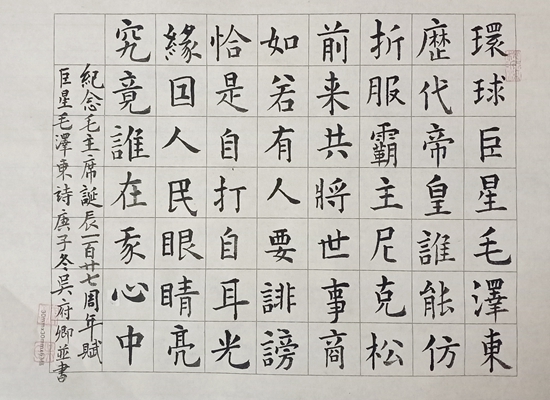 環球巨星毛澤東
歷代帝皇誰能仿
折服霸主尼克松
前来共將世事商
如若有人要誹謗
恰是自打自耳光
緣因人民眼睛亮
究竟誰在豕心中
紀念毛主席誕辰一百廿七周年賦
巨星毛澤東詩庚子冬吴府卿並書